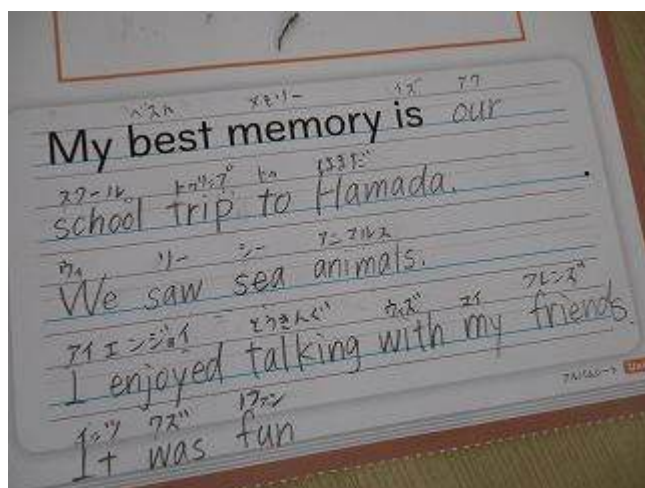 ベスト メモリー イズ アワ
My best memory is our
スクール トゥリップ トゥ はまだ
school trip to Hamada.
ウィ ソー シー アニマルス
We saw sea animals.
アイ エンジョイ とうきんぐ ウィズ マイ フレンズ
I enjoyed talking with my friends.
イッツ ワズ ファン
It was fun
アルバムシート Unit